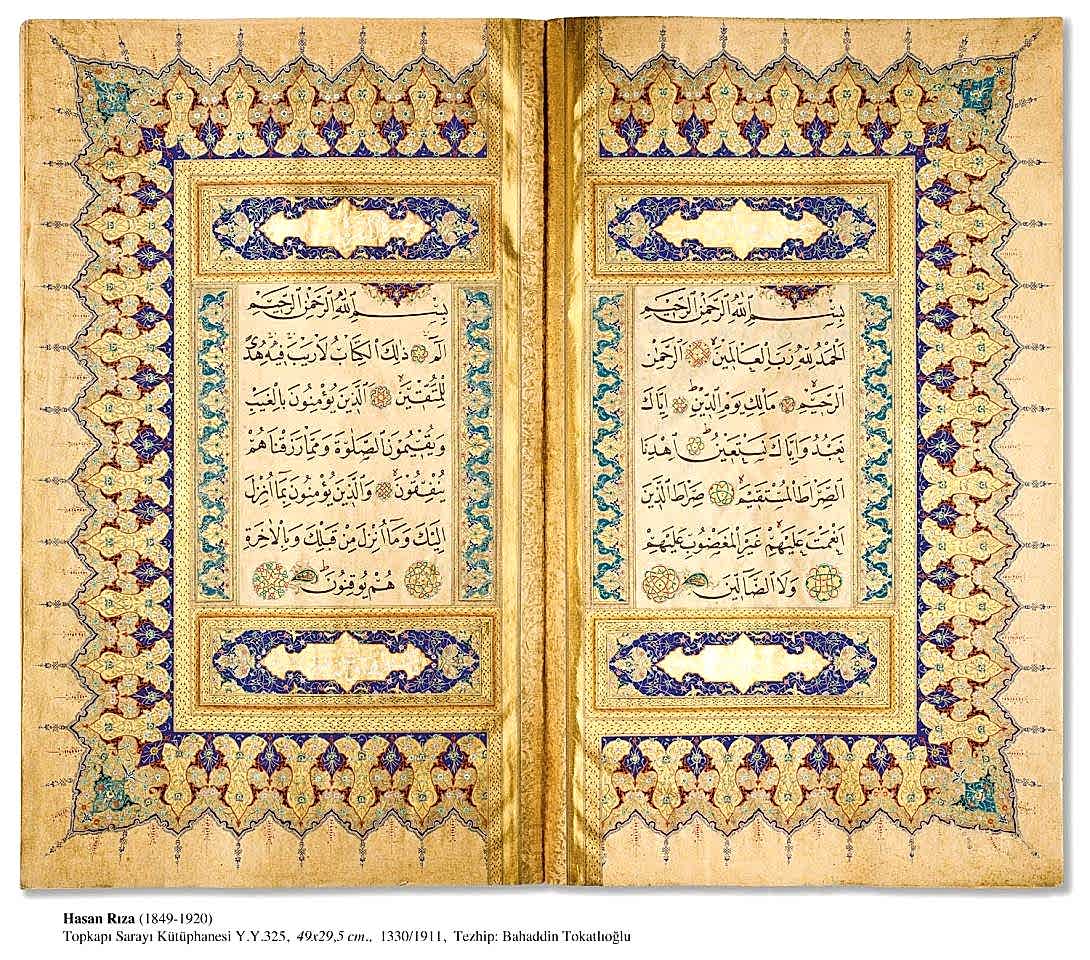 بِسْمِ اللّٰهِ الرَّحْمٰنِ الرَّحِيمِ
اَلْحَمْدُ لِلّٰهِ رَبِّ الْعَالَمِينَ الرَّحْمٰنِ
الرَّحِيمِ مَالِكِ يَوْمِ الدِّينِ اِيَّاكَ
نَعْبُدُ وَاِيَّاكَ نَسْتَعِينُ اِهْدِنَا
الصِّرَاطَ الْمُسْتَقِيمَ صِرَاطَ الَّذِينَ
اَنْعَمْتَ عَلَيْهِمْ غَيْرِ الْمَغْضُوبِ عَلَيْهِمْ
وَلَا الضَّالِّينَ
بِسْمِ اللّٰهِ الرَّحْمٰنِ الرَّحِيمِ
الٓمٓ ذٰلِكَ الْكِتَابُ لَا رَيْبَ فِيهِ هُدًى
لِلْمُتَّقِينَ اَلَّذِينَ يُؤْمِنُونَ بِالْغَيْبِ
وَيُقِيمُونَ الصَّلٰوةَ وَمِمَّا رَزَقْنَاهُمْ
يُنْفِقُونَ وَالَّذِينَ يُؤْمِنُونَ بِمَٓا اُنْزِلَ
اِلَيْكَ وَمَٓا اُنْزِلَ مِنْ قَبْلِكَ وَبِالْاٰخِرَةِ
هُمْ يُوقِنُونَ
Hasan Rıza (1849-1920)
Topkapı Sarayı Kütüphanesi Y.Y.325, 49x29,5 cm., 1330/1911, Tezhip: Bahaddin Tokatlıoğlu